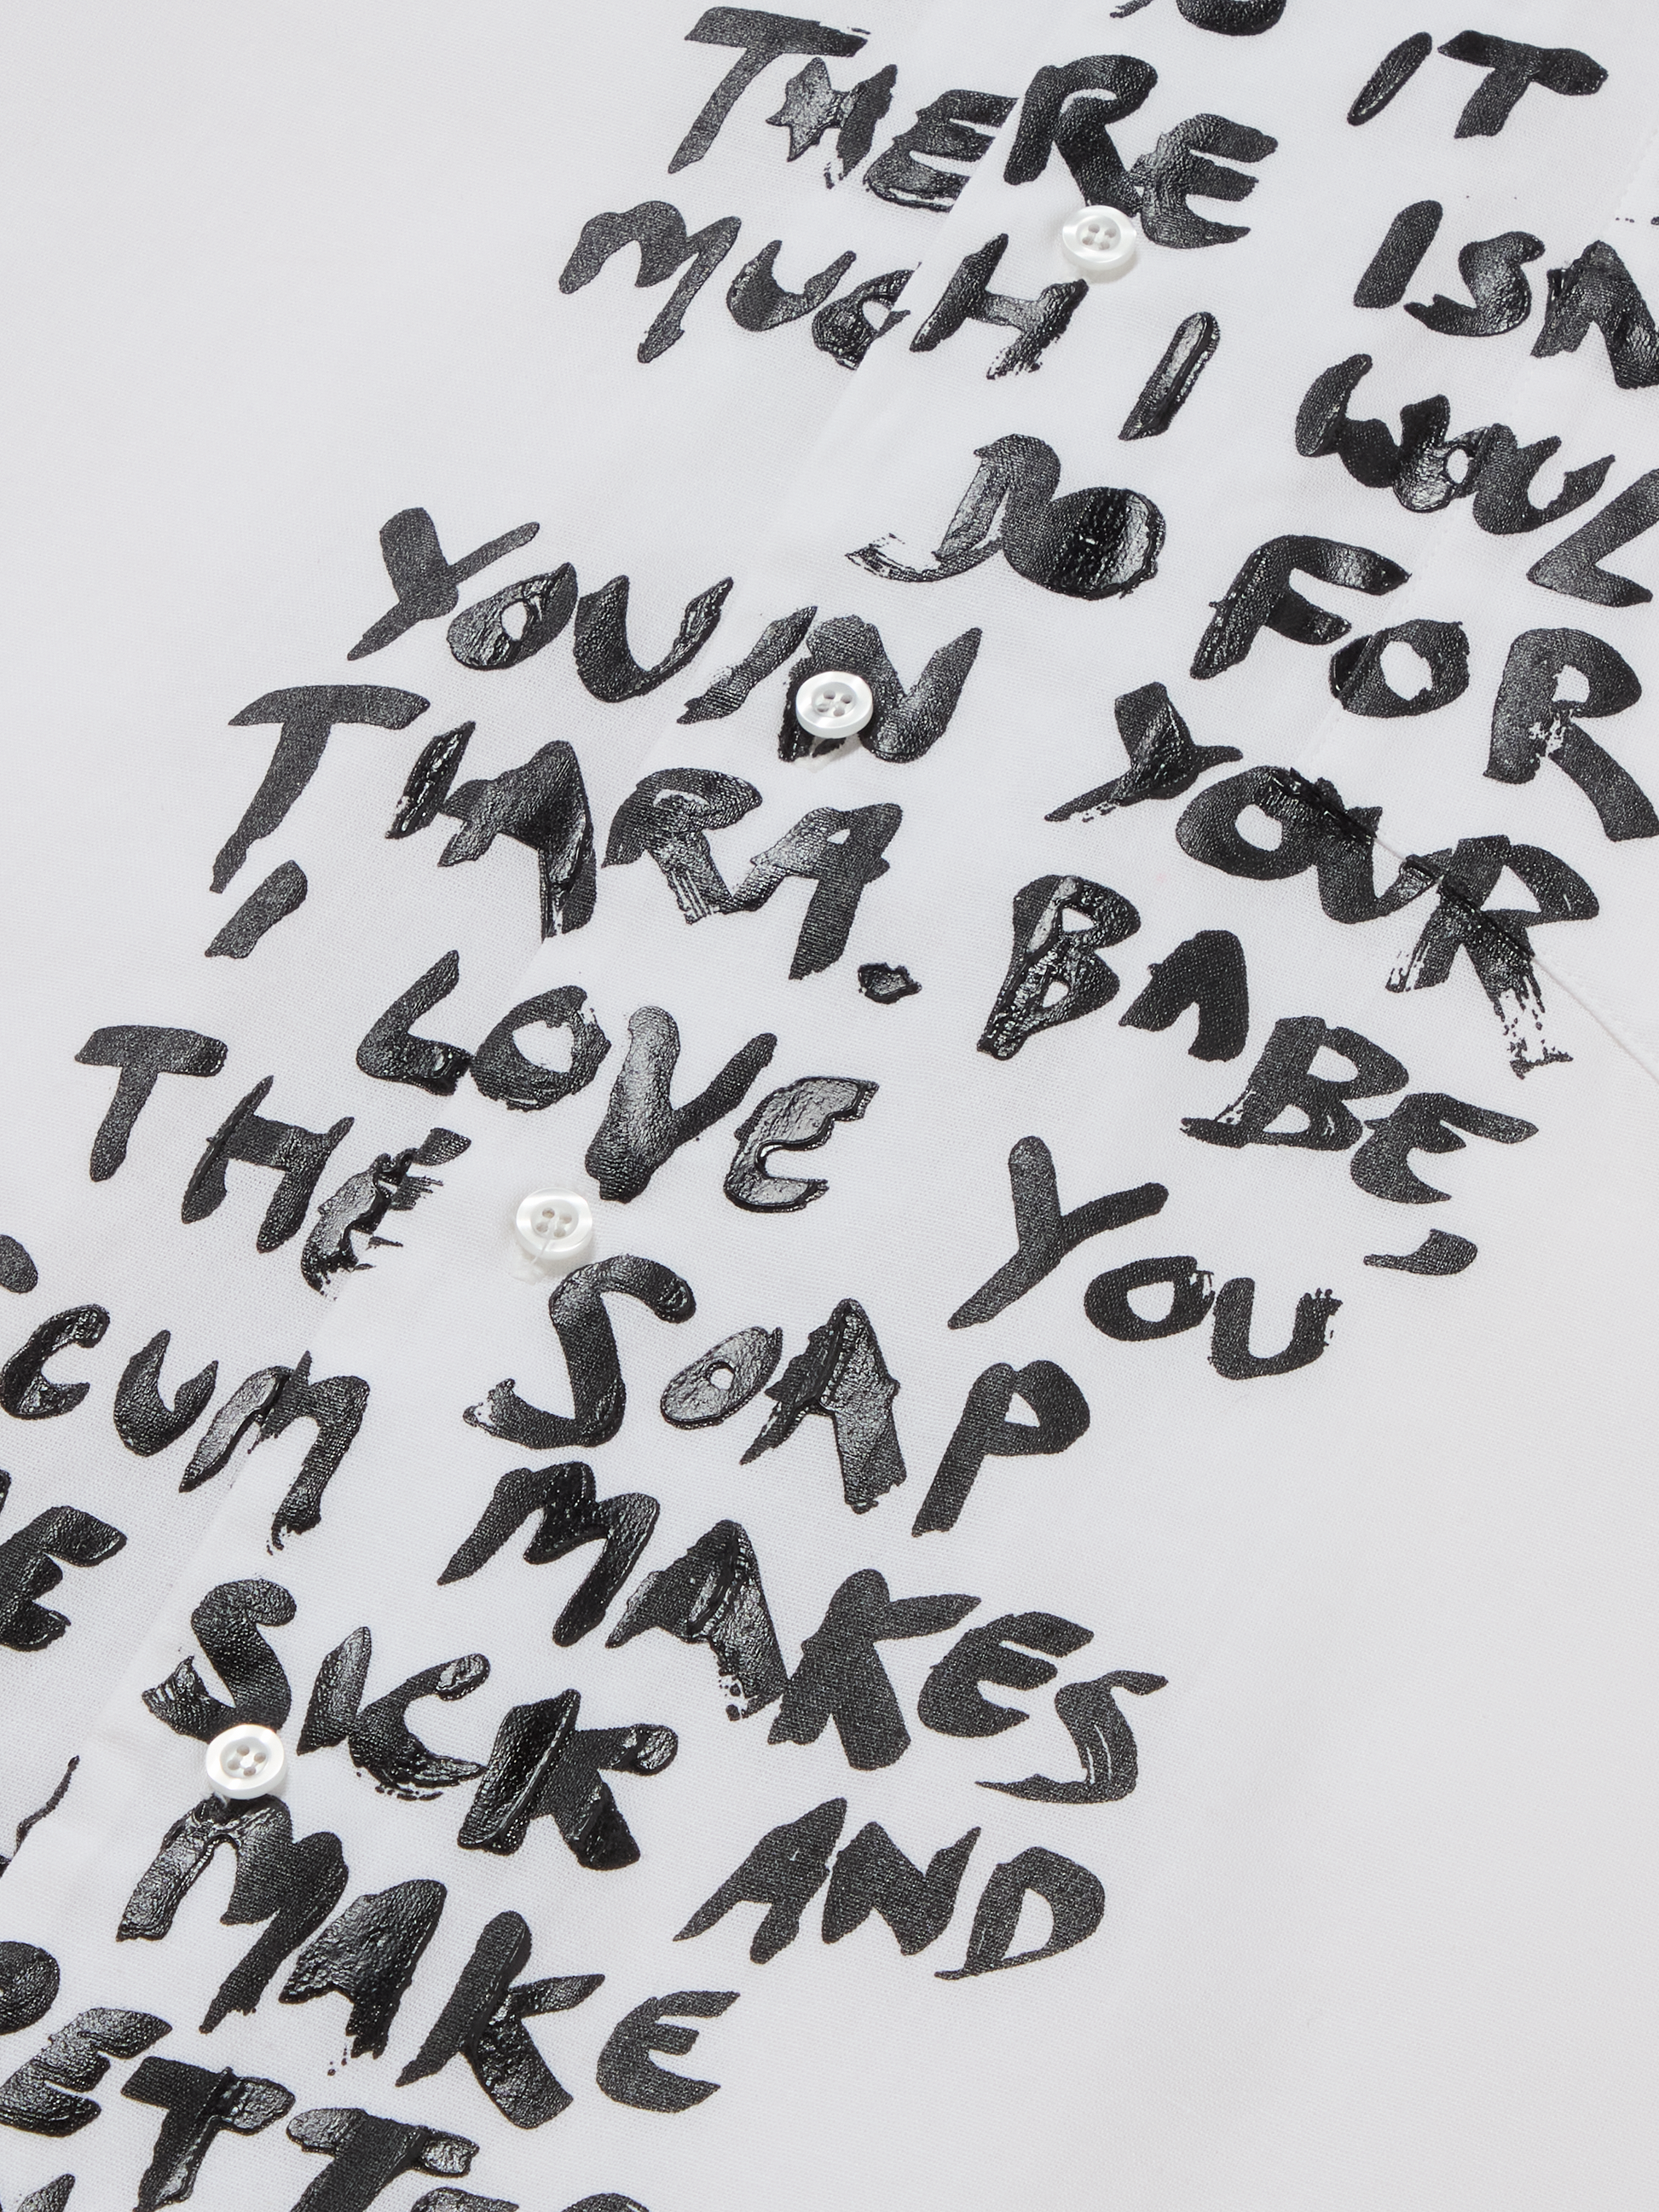 IT
THERE ISN
MUCH I WOUL
DO FOR
YOU IN YOUR
TIARA. BABE,
I LOVE YOU
THE SOAP
CUM MAKES
E SICK AND
MAKE
ETT